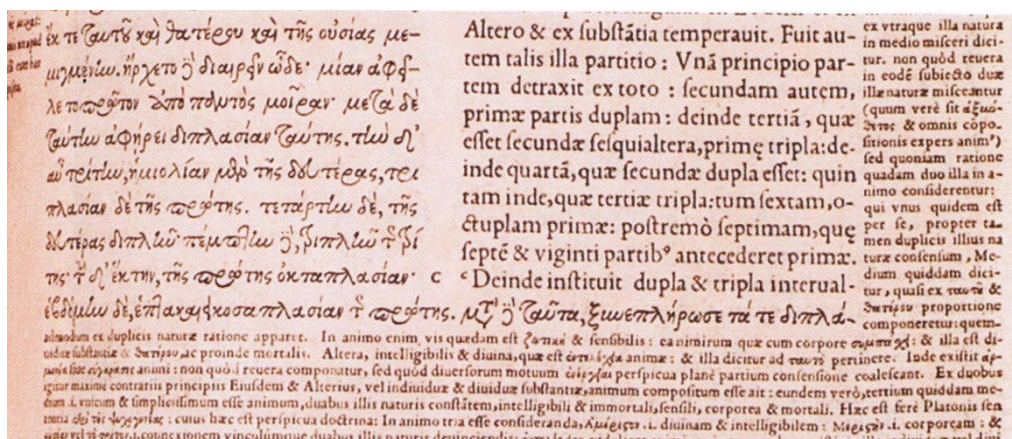 ἔκ τε ταὐτοῦ καὶ θατέρου καὶ τῆς οὐσίας με-
μιγμένην. ἤρχετο δὲ διαιρεῖν ὧδε· μίαν ἀφεῖ-
λε τὸ πρῶτον ἀπὸ παντὸς μοῖραν· μετὰ δὲ
ταύτην ἀφῄρει διπλασίαν ταύτης. τὴν δ'
αὖ τρίτην, ἡμιολίαν μὲν τῆς δευτέρας, τρι
πλασίαν δὲ τῆς πρώτης. τετάρτην δὲ, τῆς
δευτέρας διπλῆν· πέμπτην δὲ, τριπλῆν τῆς τρί
της· τὴν δ' ἕκτην, τῆς πρώτης ὀκταπλασίαν· C
ἑβδόμην δὲ, ἑπτακαιεικοσαπλασίαν τῆς πρώτης. μετὰ δὲ ταῦτα, ξυνεπλήρωσε τά τε διπλά-
Altero & ex substãtia temperauit. Fuit au-
tem talis illa partitio : Vnã principio par-
tem detraxit ex toto : secundam autem,
primæ partis duplam: deinde tertiã, quæ
esset secundæ sesquialtera, primę tripla: de-
inde quartã, quæ secundæ dupla esset: quin
tam inde, quæ tertiæ tripla: tum sextam, o-
ctuplam primæ: postremò septimam, quę
septẽ & viginti partibꝰ antecederet primæ.
ᶜ Deinde instituit dupla & tripla interual-
ex vtraque illa natura
in medio misceri dici-
tur. non quòd reuera
in eodẽ subiecto duæ
illæ naturæ misceantur
(quum verè sit ἀξιω-
& omnis cõpo-
sitionis expers anim')
sed quoniam ratione
quadam duo illa in a-
nimo considerentur:
qui vnus quidem est
per se, propter ta-
men duplicis illius na
turæ consensum, Me-
dium quiddam dici-
tur, quasi ex ταυτῦ &
θατέρου proportione
componeretur: quem-
admodum ex duplicis naturæ ratione apparet. In animo enim, vis quædam est ζωτικὴ & sensibilis : ea nimirum quæ cum corpore & illa est di-
uiduæ substantiæ & θατέρου, ac proinde mortalis. Altera, intelligibilis & diuina, quæ est animæ : & illa dicitur ad ταυτὸ pertinere. Inde existit
animi : non quòd reuera componatur, sed quòd diuersorum motuum perspicua planè partium consensione coalescant. Ex duobus
igitur maximè contrariis principiis Eiusdem & Alterius, vel indiuiduæ & diuiduæ substantiæ, animum compositum esse ait : eundem verò, tertium quiddam me-
dium .i. vnicum & simplicissimum esse animum, duabus illis naturis constãtem, intelligibili & immortali, sensili, corporea & mortali. Hæc est ferè Platonis sen
tentia : cuius hæc est perspicua doctrina: In animo tria esse consideranda, Ἀμέριστον .i. diuinam & intelligibilem : Μεριστὸν .i. corpoream : &
.i. connexionem vinculumque duabus illis naturis